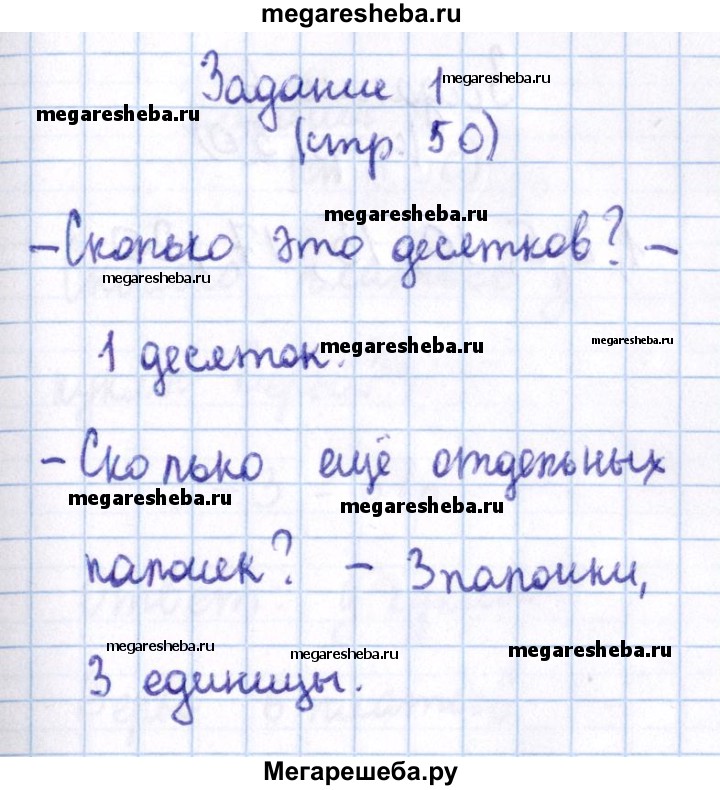 megaresheba.ru
Задание 1
megaresheba.ru
megaresheba.ru
(стр. 50)
megaresheba.ru
– Сколько это десятков? –
megaresheba.ru
megaresheba.ru
1 десяток.
megaresheba.ru
– Сколько ещё отдельных
megaresheba.ru
megaresheba.ru
палочек? – 3 палочки,
megaresheba.ru
megaresheba.ru
megaresheba.ru
3 единицы.
Мегарешеба.ру